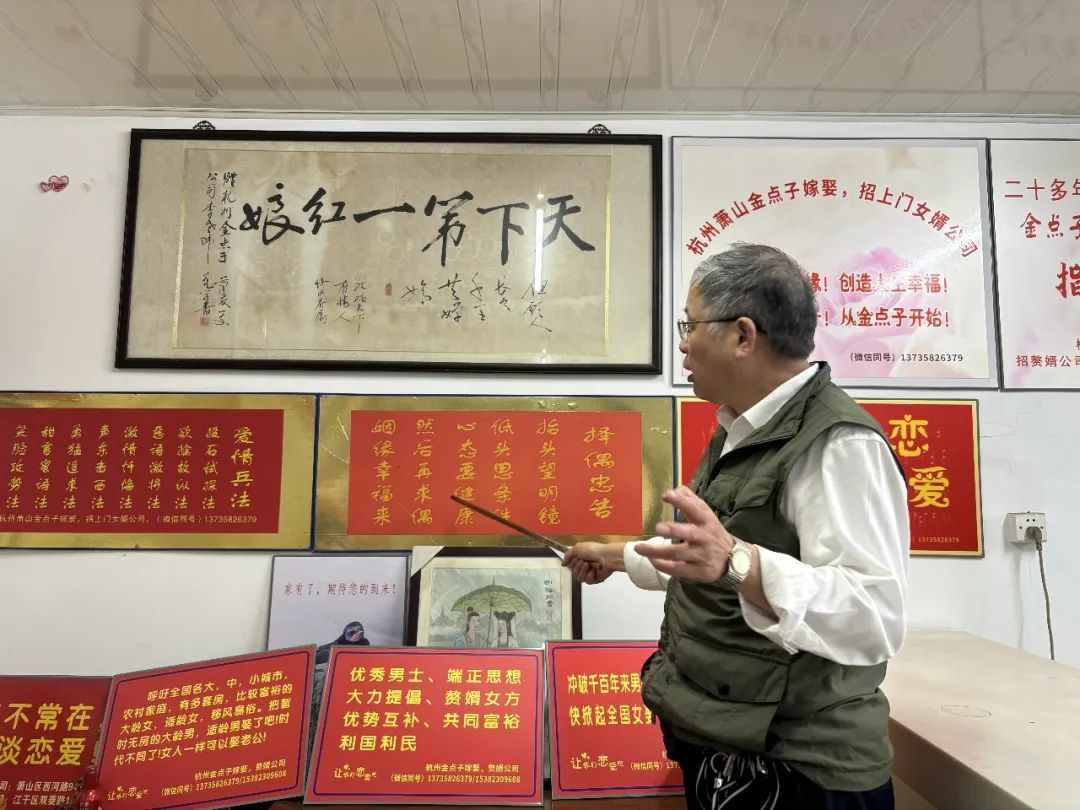 天下第一红娘
赠杭州金点子
但愿人
长久
千里
共婵
娟
祝福天下
有情人
杭州萧山金点子嫁娶，招上门女婿公司
缘！创造人生幸福！
！从金点子开始！
（微信同号）13735826379
二十多年
金点子
指
招赘婿公司
爱情兵法
投石试探法
欲擒故纵法
恶语激将法
激情忏悔法
声东击西法
勇猛追求法
甜言蜜语法
笑脸攻势法
杭州萧山金点子嫁娶，招上门女婿公司，（微信同号）13735826379
择偶忠告
抬头望明镜
低头思条件
心态要健康
然后再求偶
姻缘幸福来
恋
爱
13735826379
家有了，期待您的到来！
不常在
谈恋爱！
司：萧山区西河路9
江干区双菱路1
呼吁全国各大，中，小城市，
农村家庭，有多套房，比较富裕的
大龄女，适龄女，移风易俗。把暂
时无房的大龄男，适龄男娶了吧！时
代不同了！女人一样可以娶老公！
杭州金点子嫁娶，赘婿公司
让你们恋爱吧
（微信同号）13735826379/15382309608
优秀男士、端正思想
大力提倡、赘婿女方
优势互补、共同富裕
利国利民
杭州金点子嫁娶，赘婿公司
让你们恋爱吧
（微信同号）13735826379/15382309608
冲破千百年来男
快掀起全国女
杭州金点子
让你们恋爱吧
（微信同号）1373582